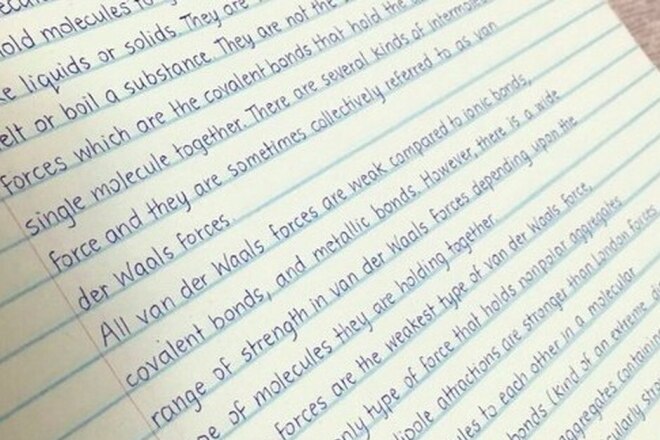 old molecules to
liquids or solids. They are
or boil a substance. They are not the
forces which are the covalent bonds that hold the
single molecule together. There are several kinds of
force and they are sometimes collectively referred to as van
der Waals forces.
All van der Waals forces are weak compared to ionic bonds,
covalent bonds, and metallic bonds. However, there is a wide
range of strength in van der Waals forces depending upon the
of molecules they are holding together.
forces are the weakest type of van der Waals force,
only type of force that holds nonpolar aggregates
attractions are stronger than London forces
to each other in a molecular
bonds (kind of an extreme
aggregates